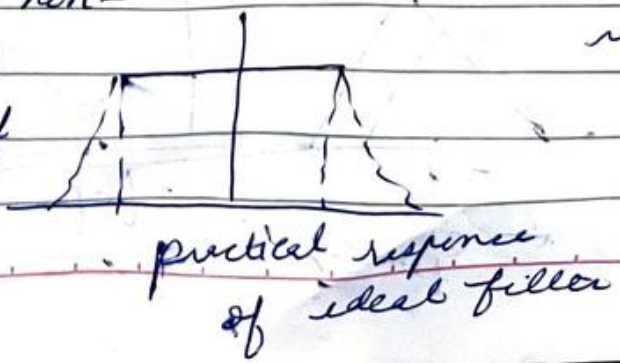 practical responce
of ideal filter